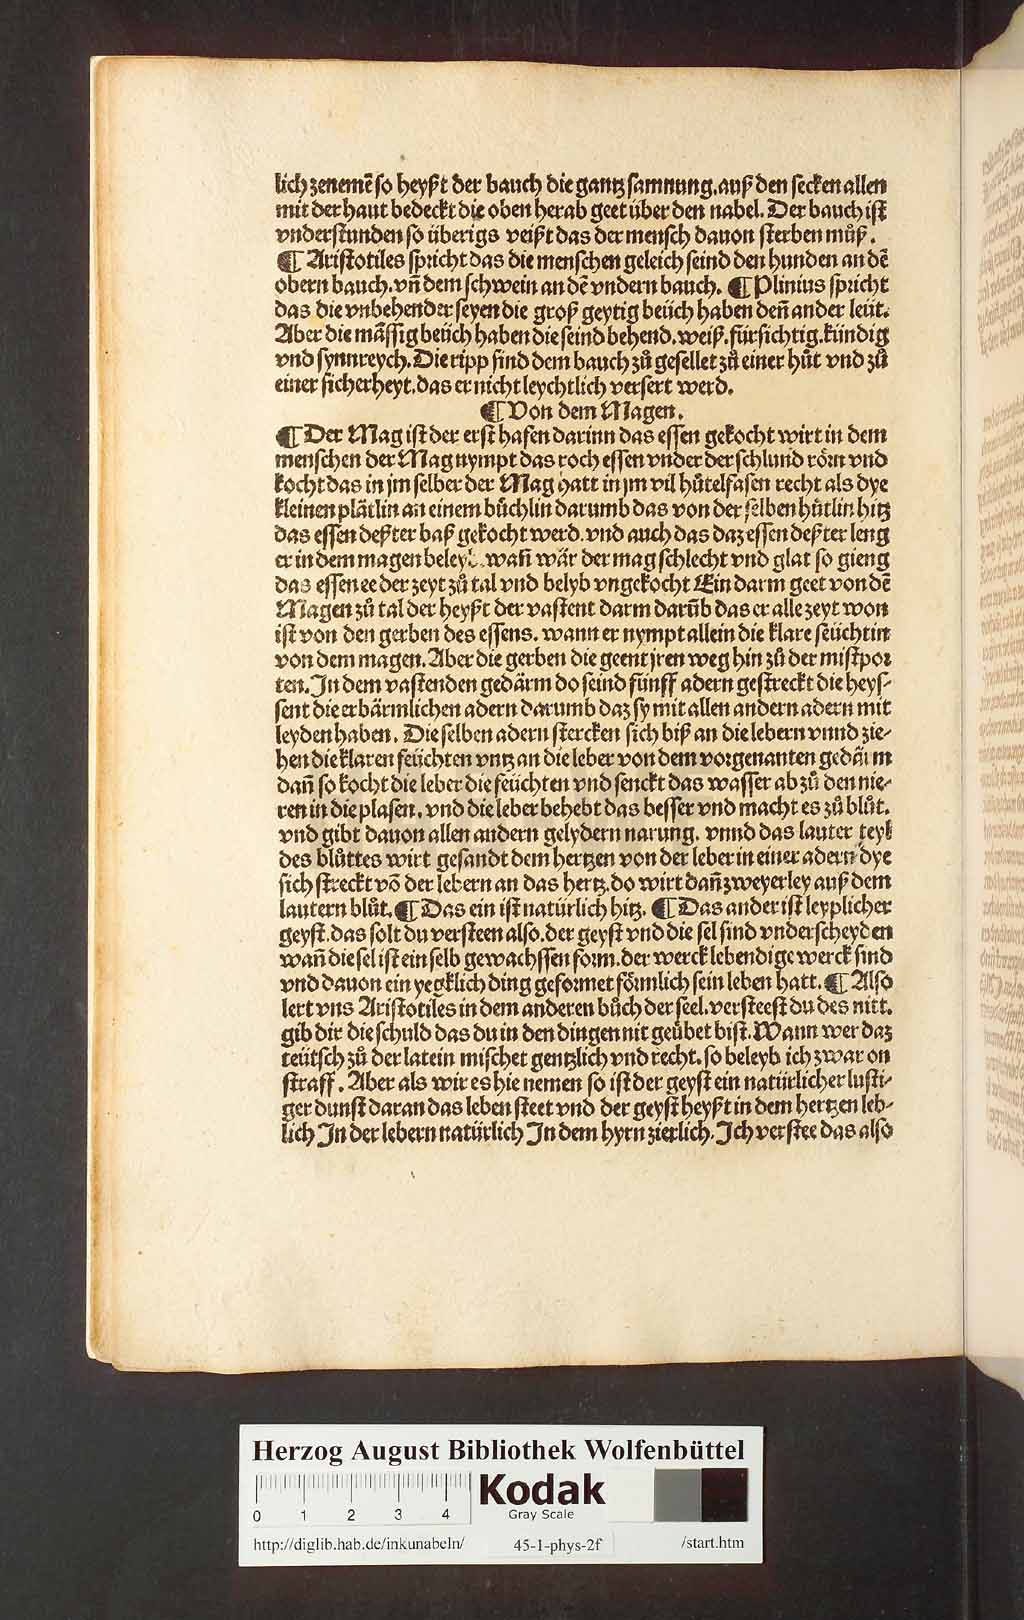 lich zenemē so heyßt der bauch die gantz samnung. auß den secken allen
mit der haut bedeckt die oben herab geet über den nabel. Der bauch ist
vnderstunden so überigs veißt das der mensch dauon sterben můß.
¶ Aristotiles spricht das die menschen geleich seind den hunden an dē
obern bauch. vn̄ dem schwein an dē vndern bauch. ¶ Plinius spricht
das die vnbehender seyen die groß geytig beüch haben den̄ ander leüt.
Aber die mässig beüch haben die seind behend. weiß. fürsichtig. kündig
vnd synnreych. Die ripp sind dem bauch zů gesellet zů einer hůt vnd zů
einer sicherheyt. das er nicht leychtlich versert werd.
¶ Von dem Magen.
¶ Der Mag ist der erst hafen darinn das essen gekocht wirt in dem
menschen der Mag nympt das roch essen vnder der schlund rörn vnd
kocht das in jm selber der Mag hatt in jm vil hůtelfasen recht als dye
kleinen plätlin an einem bůchlin darumb das von der selben hůtlin hitz
das essen deßter baß gekocht werd. vnd auch das daz essen deßter leng
er in dem magen beleyb. wan̄ wär der mag schlecht vnd glat so gieng
das essen ee der zeyt zů tal vnd belyb vngekocht Ein darm geet von dē
Magen zů tal der heyßt der vastent darm darūb das er alle zeyt won
ist von den gerben des essens. wann er nympt allein die klare feüchtin
von dem magen. Aber die gerben die geent jren weg hin zů der mistpor
ten. In dem vastenden gedärm do seind fünff adern gestreckt die heys-
sent die erbärmlichen adern darumb daz sy mit allen andern adern mit
leyden haben. Die selben adern stercken sich biß an die lebern vnnd zie-
hen die klaren feüchten vntz an die leber von dem vorgenanten gedärm
dan̄ so kocht die leber die feüchten vnd senckt das wasser ab zů den nie-
ren in die plasen. vnd die leber behebt das besser vnd macht es zů blůt.
vnd gibt dauon allen andern gelydern narung. vnnd das lauter teyl
des blůttes wirt gesandt dem hertzen von der leber in einer adern dye
sich streckt vō der lebern an das hertz. do wirt dan̄ zweyerley auß dem
lautern blůt. ¶ Das ein ist natürlich hitz. ¶ Das ander ist leyplicher
geyst. das solt du versteen also. der geyst vnd die sel sind vnderscheyden
wan̄ die sel ist ein selb gewachssen form. der werck lebendige werck sind
vnd dauon ein yegklich ding geformet förmlich sein leben hatt. ¶ Also
lert vns Aristotiles in dem anderen bůch der seel. versteest du des nitt.
gib dir die schuld das du in den dingen nit geübet bist. Wann wer daz
teütsch zů der latein mischet gentzlich vnd recht. so beleyb ich zwar on
straff. Aber als wir es hie nemen so ist der geyst ein natürlicher lusti-
ger dunst daran das leben steet vnd der geyst heyßt in dem hertzen leb-
lich In der lebern natürlich In dem hyrn zierlich. Ich verstee das also
Herzog August Bibliothek Wolfenbüttel
0 1 2 3 4
Kodak
Gray Scale
http://diglib.hab.de/inkunabeln/ 45-1-phys-2f /start.htm